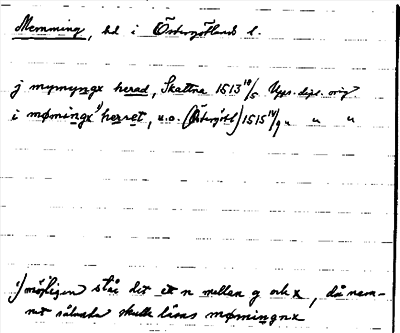 Memming, hd i Östergötlands l.
j mymyngx herad, Skattna 1513 18/5 Upps. dipl. orig
i møminngx¹⁾ herret, u.o. (Östergötl) 1515 14/9 " " "
¹⁾ möjligen står det ett n mellan g och x, då nam-
net således skulle läsas møminngnx